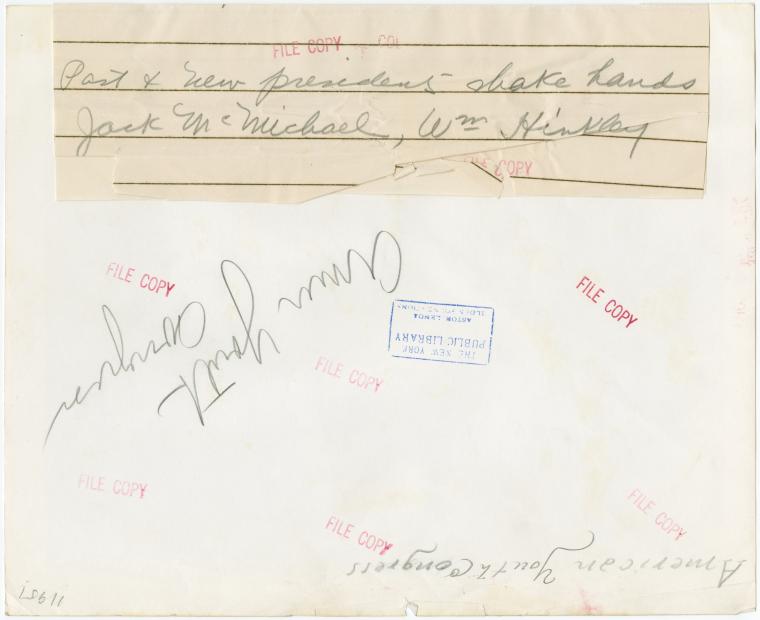 FILE COPY
Past & New presidents shake hands
Jack McMichael, Wm Hinkley
FILE COPY
FILE COPY
FILE COPY
Amer
Youth
Congress
THE NEW YORK
PUBLIC LIBRARY
ASTOR LENOX
TILDEN FOUNDATIONS
FILE COPY
FILE COPY
FILE COPY
FILE COPY
American Youth Congress